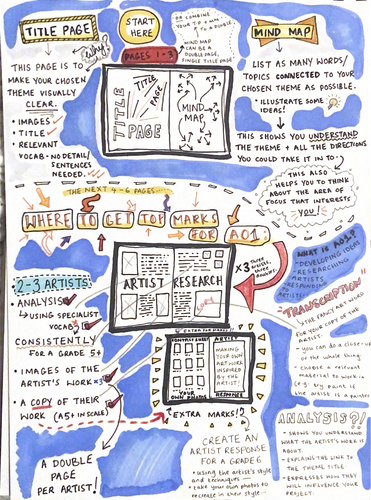 TITLE PAGE
WHY?
THIS PAGE IS TO
MAKE YOUR CHOSEN
THEME VISUALLY
CLEAR.
• IMAGES
• TITLE
• RELEVANT
VOCAB - NO DETAIL/
SENTENCES
NEEDED.
START
HERE
PAGES 1-3
OR COMBINE
YOUR T.P + MM
TO A DOUBLE.
MIND MAP
CAN BE A
DOUBLE PAGE,
SINGLE TITLE PAGE!
TITLE PAGE
TITLE
TITLE
PAGE
MIND
MAP
MIND MAP
LIST AS MANY WORDS/
TOPICS CONNECTED TO YOUR
CHOSEN THEME AS POSSIBLE.
• ILLUSTRATE SOME
IDEAS!
THIS SHOWS YOU UNDERSTAND
THE THEME + ALL THE DIRECTIONS
YOU COULD TAKE IT IN TO!
THIS ALSO
HELPS YOU TO THINK
ABOUT THE AREA OF
FOCUS THAT INTERESTS
YOU!
THE NEXT 4-6 PAGES...
WHERE TO GET TOP MARKS
FOR AO1.
2-3 ARTISTS:
ANALYSIS
USING SPECIALIST
VOCAB
CONSISTENTLY
FOR A GRADE 5+
• IMAGES OF THE
ARTIST'S WORK x3
• A COPY OF THEIR
WORK (A5+ IN SCALE)
A DOUBLE
PAGE
PER ARTIST!
ARTIST RESEARCH
COPY
x3 three
artists, three
doubles.
WHAT IS AO1?
- DEVELOPING IDEAS
- RESEARCHING
ARTISTS
- RESPONDING
TO
ARTISTS!
"TRANSCRIPTION"
THE FANCY ART WORD
FOR YOUR COPY OF THE
ARTIST.
- you can do a close-up
or the whole thing.
- choose a relevant
material to work in
(eg: try paint if
the artist is a painter
EXTRA FOR GRADE
CONTACT SHEET
YOUR
OWN PHOTOS
ARTIST
MAKING
YOUR OWN
ARTWORK
INSPIRED
BY THE
ARTIST!
RESPONSE
EXTRA MARKS!?
CREATE AN
ARTIST RESPONSE
FOR A GRADE 6
• using the artist's style
and techniques -
• take your own photos to
recreate in their style -
ANALYSIS?!
- SHOWS YOU UNDERSTAND
WHAT THE ARTIST'S WORK IS
ABOUT.
- EXPLAINS THE LINK TO
THE THEME TITLE.
- EXPRESSES HOW THEY
WILL INFLUENCE YOUR
PROJECT.